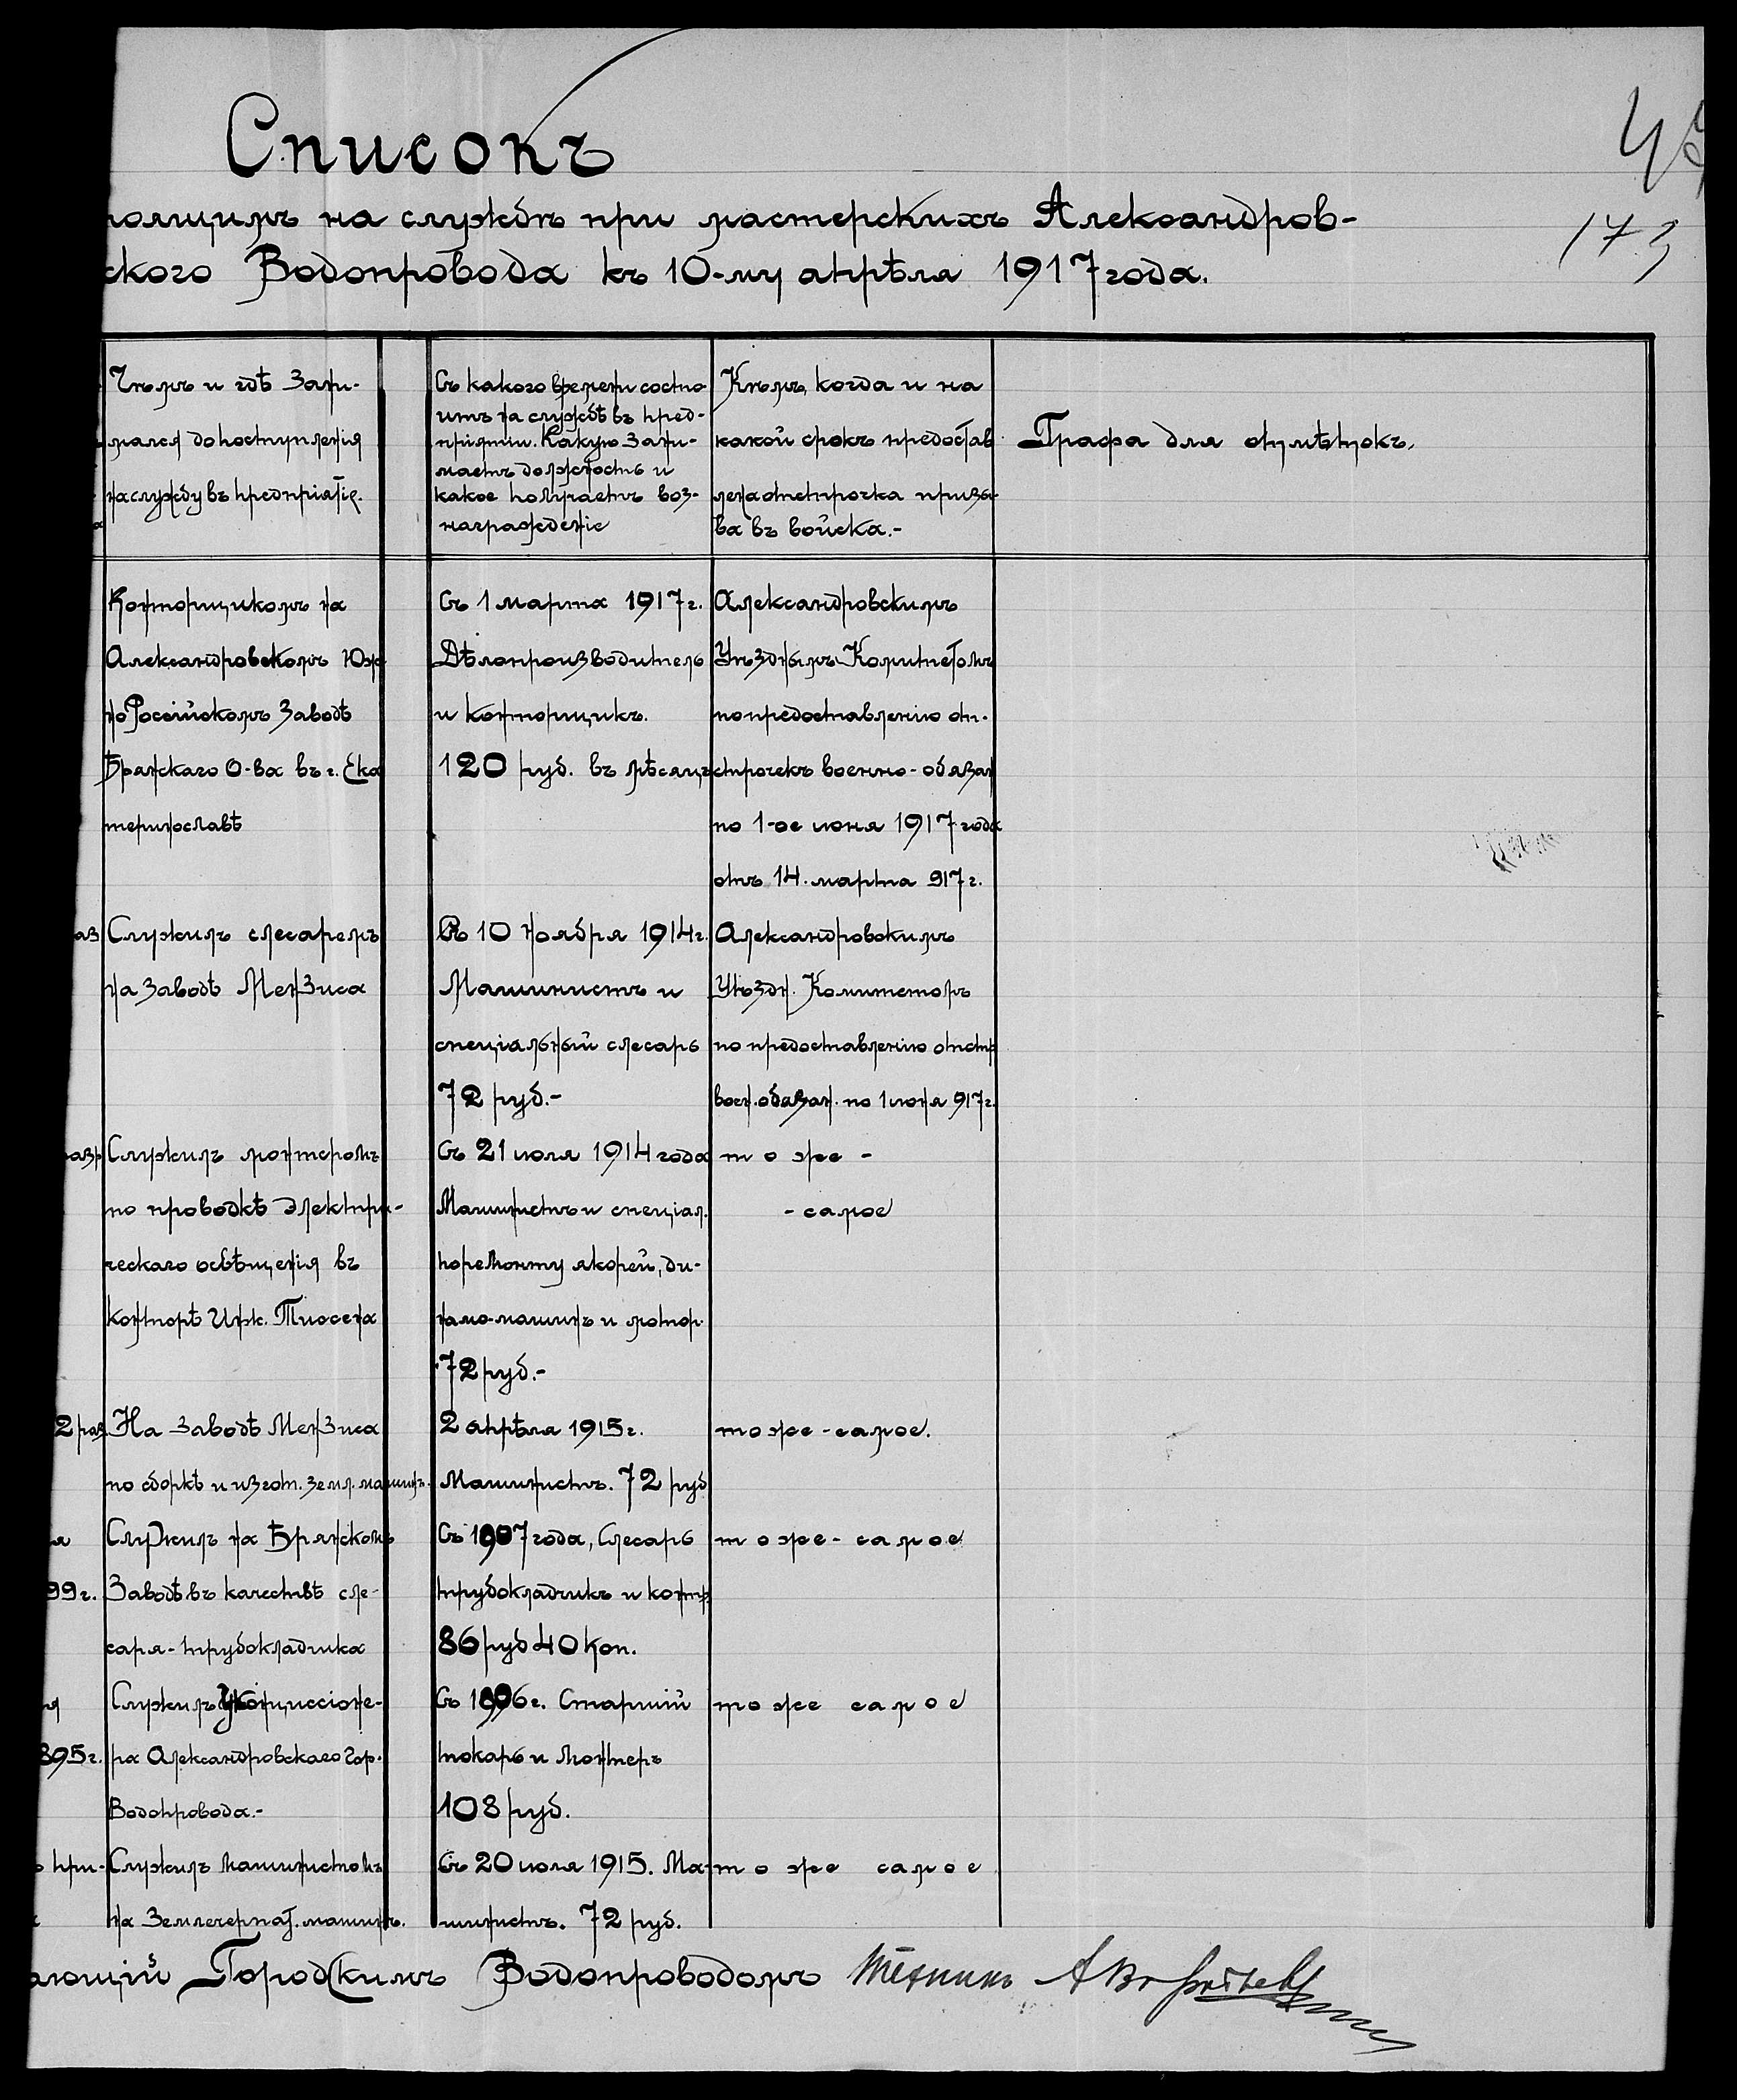 Списокъ
173
на службѣ при мастерскихъ Александров-
ского Водопровода къ 10-му апрѣля 1917 года.
Чѣмъ и гдѣ зани-
мался до поступленія
на службу въ предпріятіе.
Съ какого времени состо-
итъ на службѣ въ пред-
приятии. Какую зани-
маетъ должность и
какое получаетъ воз-
награжденіе
Кѣмъ, когда и на
какой срокъ предостав
лена отсрочка призы-
ва въ войска.-
Графа для отмѣтокъ.
Конторщикомъ на
Александровскомъ Юж
но Россійскомъ Заводѣ
Брянскаго О-ва въ г. Ека
теринославѣ
Съ 1 марта 1917 г.
Дѣлопроизводитель
и конторщикъ.
120 руб. въ мѣсяцъ
Александровскимъ
Уѣзднымъ Комитетомъ
по предоставленію от-
строчекъ военно-обязан
по 1-ое июня 1917 года
отъ 14. марта 917 г.
аз
Служилъ слесаремъ
на заводѣ Мензиса
Съ 10 ноября 1914 г.
Машинистъ и
спеціальный слесарь
72 руб.-
Александровскимъ
Уѣздн. Комитетомъ
по предоставленію отстр
воен. обязан. по 1 июня 917 г.
азр
Служилъ монтеромъ
по проводкѣ электри-
ческаго освѣщенія въ
конторѣ Инж. Тиосена
Съ 21 июля 1914 года
Машинистъ и спеціал.
по ремонту якорей, ди-
намо-машинъ и мотор.
72 руб.-
то же -
- самое
2 раз.
На заводѣ Мензиса
по сборкѣ и изгот. земл. машинъ.
2 апрѣля 1915 г.
Машинистъ. 72 руб
тоже - самое.
я
99 г.
Служилъ на Брянскомъ
Заводѣ въ качествѣ сле-
саря-трубокладчика
Съ 1907 года, Слесарь
трубокладчикъ и контр.
86 руб 40 коп.
то же - самое
я
895 г.
Служилъ у Концессіоне-
ра Александровскаго Гор.
Водопровода.-
Съ 1896 г. Старшій
токарь и монтеръ
108 руб.
то же самое
при-
Служилъ машинистомъ
на Землечерпат. машинѣ.
Съ 20 июля 1915. Ма-
шинистъ. 72 руб.
то же самое
ающій Городскимъ Водопроводомъ Техникъ